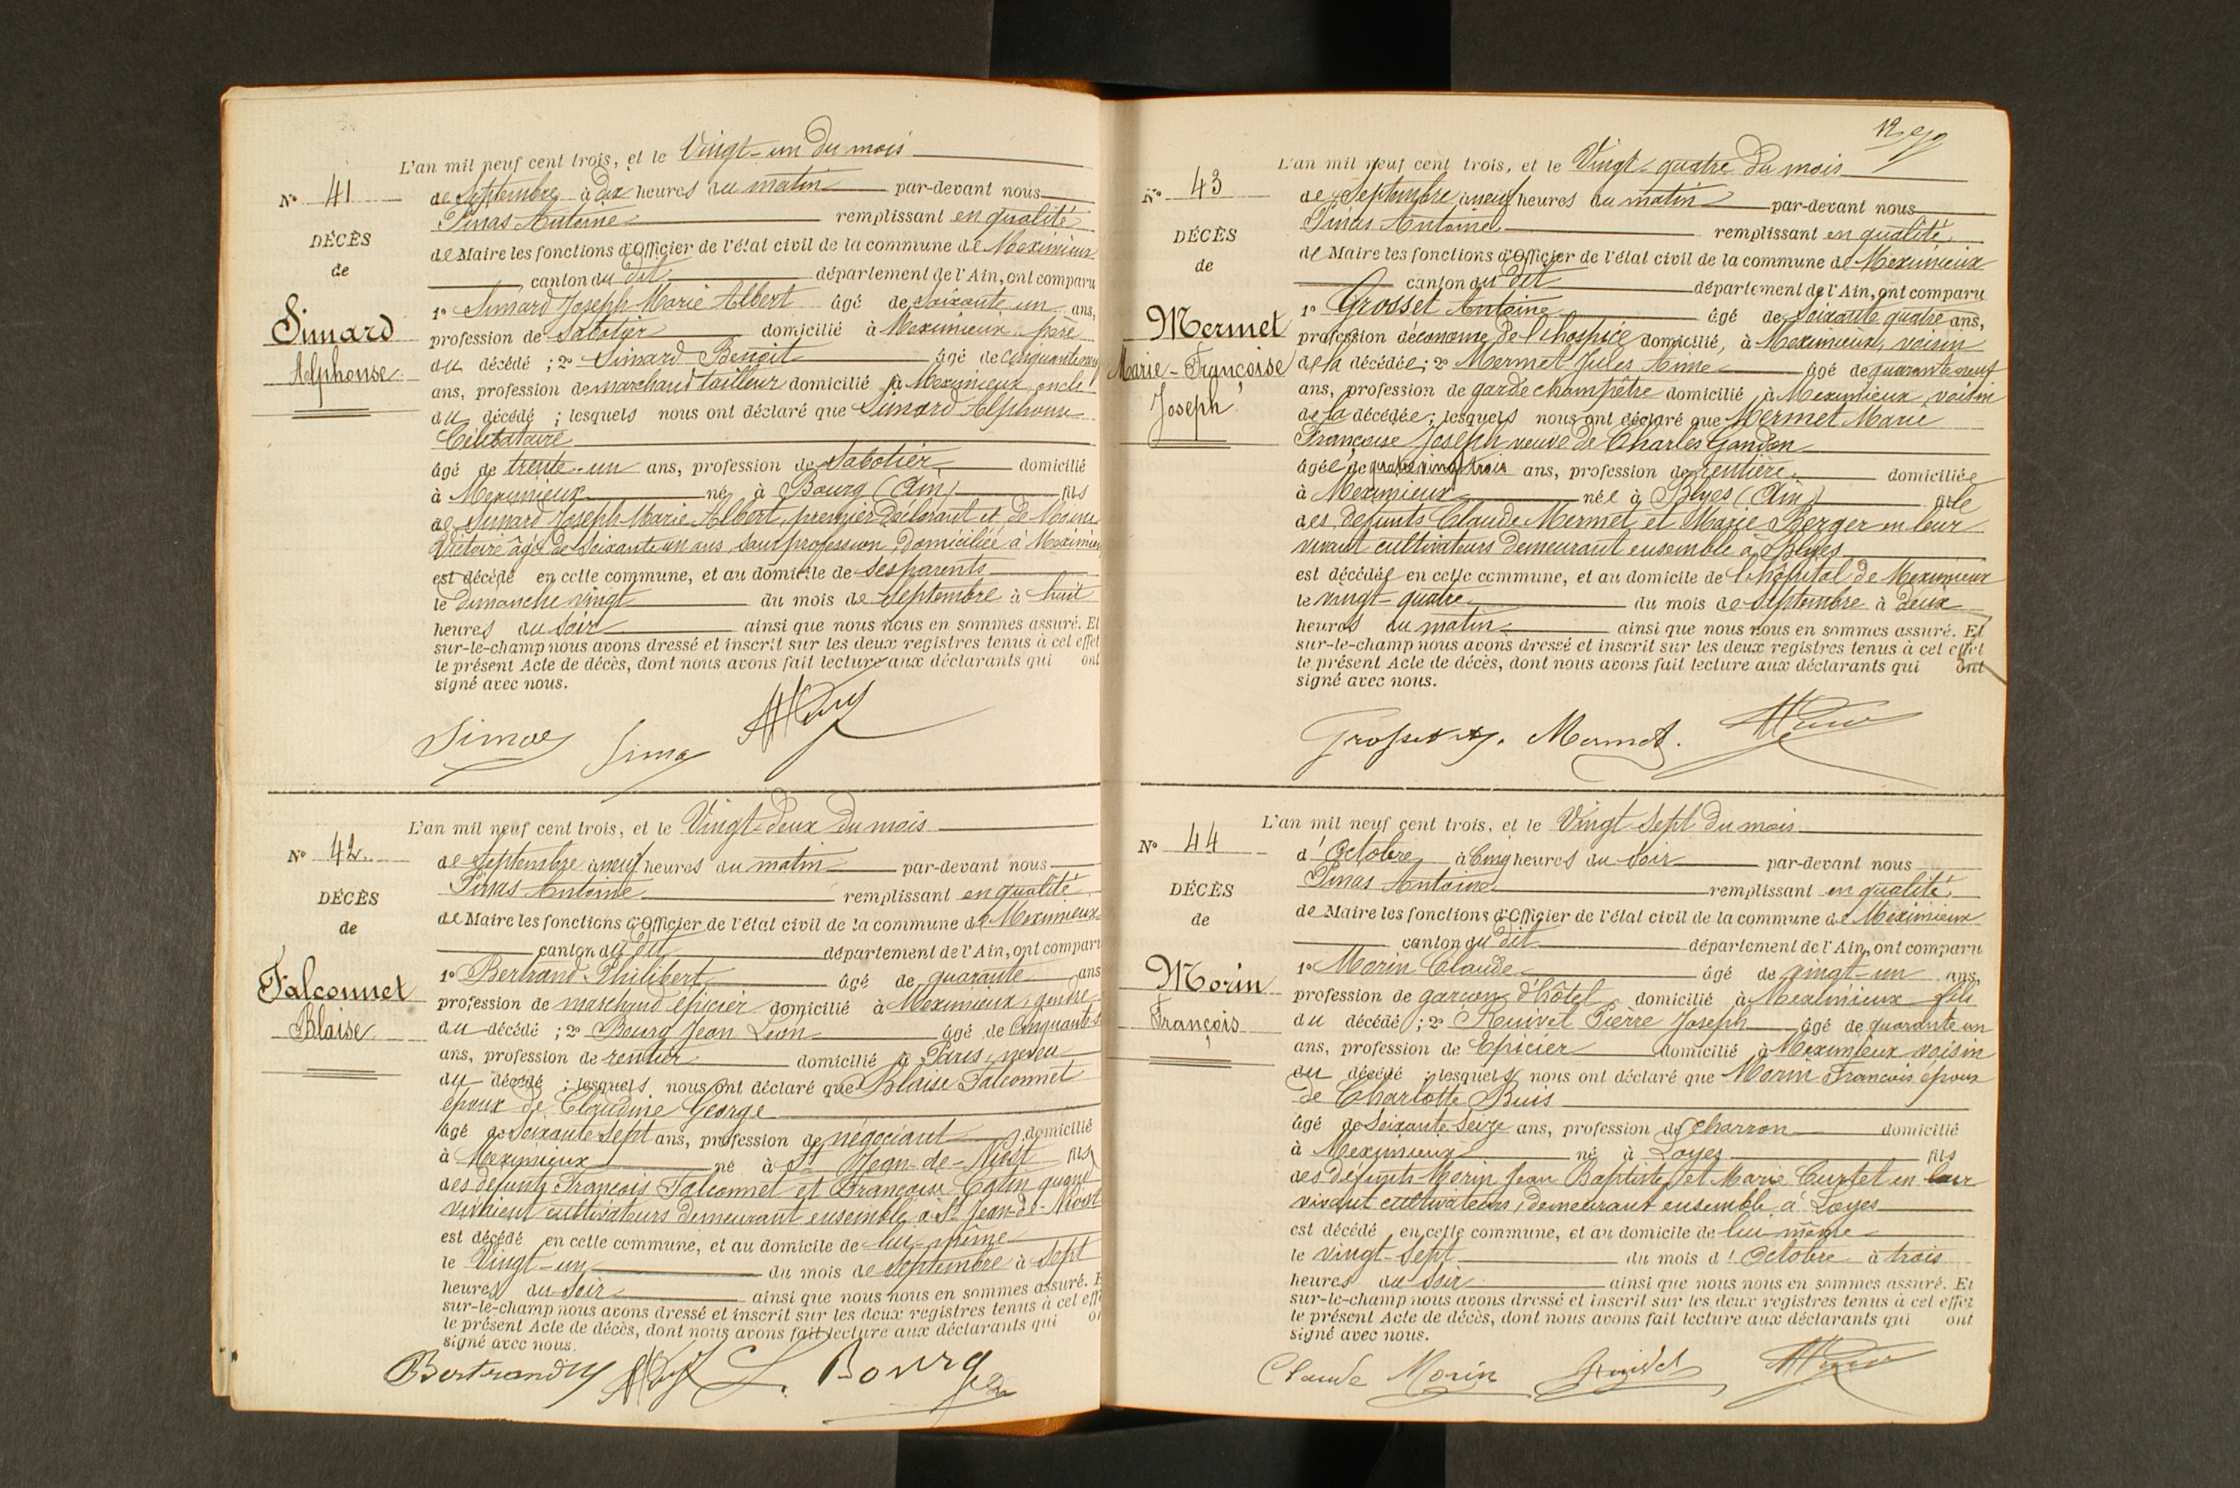 L'an mil neuf cent trois, et le Vingt-un du mois
N° 41
de Septembre à dix heures du matin par-devant nous
Pinas Antoine remplissant en qualité
DÉCÈS
de Maire les fonctions d'Officier de l'état civil de la commune de Meximieux
de
canton du dit département de l'Ain, ont comparu
1° Simard Joseph Marie Albert âgé de Soixante un ans,
Simard
profession de Sabotier domicilié à Meximieux père
du décédé ; 2° Simard Benoit âgé de cinquante
Alphonse
ans, profession de marchand tailleur domicilié à Meximieux oncle
du décédé ; lesquels nous ont déclaré que Simard Alphonse
Célibataire
âgé de trente-un ans, profession de Sabotier domicilié
à Meximieux né à Bourg (Ain) fils
de Simard Joseph Marie Albert, premier déclarant et de
Victoire âgée de Soixante un ans, sans profession, domiciliée à Meximieu
est décédé en cette commune, et au domicile de ses parents
le dimanche vingt du mois de Septembre à huit
heures du soir ainsi que nous nous en sommes assuré. Et
sur-le-champ nous avons dressé et inscrit sur les deux registres tenus à cet effet
le présent Acte de décès, dont nous avons fait lecture aux déclarants qui ont
signé avec nous.
L'an mil neuf cent trois, et le Vingt-deux du mois
N° 42
de Septembre à neuf heures du matin par-devant nous
Pinas Antoine remplissant en qualité
DÉCÈS
de Maire les fonctions d'Officier de l'état civil de la commune de Meximieux
de
canton du dit département de l'Ain, ont comparu
1° Bertrand Philibert âgé de quarante ans
Falconnet
profession de marchand épicier domicilié à Meximieux, gendre
Blaise
du décédé ; 2° Bourg Jean Léon âgé de Cinquante-s
ans, profession de rentier domicilié à Paris, neveu
du décédé ; lesquels nous ont déclaré que Blaise Falconnet
époux de Claudine George
âgé de Soixante Sept ans, profession de négociant domicilié
à Meximieux né à St Jean-de-Niost fils
des défunts François Falconnet et Françoise Cotin quand
vivaient cultivateurs demeurant ensemble à St Jean-de-Niost
est décédé en cette commune, et au domicile de lui-même
le Vingt-un du mois de Septembre à sept
heures du soir ainsi que nous nous en sommes assuré. E
sur-le-champ nous avons dressé et inscrit sur les deux registres tenus à cet effe
le présent Acte de décès, dont nous avons fait lecture aux déclarants qui on
signé avec nous.
Bertrand L. Bourg
12
L'an mil neuf cent trois, et le Vingt-quatre du mois
N° 43
de Septembre à neuf heures du matin par-devant nous
Pinas Antoine remplissant en qualité
DÉCÈS
de Maire les fonctions d'Officier de l'état civil de la commune de Meximieux
de
canton du dit département de l'Ain, ont comparu
1° Grosset Antoine âgé de Soixante quatre ans,
Mermet
profession d'économe de l'hospice domicilié, à Meximieux, voisin
Marie-Françoise
de la décédée ; 2° Mermet Jules Aimé âgé de quarante neuf
ans, profession de garde champêtre domicilié à Meximieux, voisin
Joseph
de la décédée ; lesquels nous ont déclaré que Mermet Marie
Françoise Joseph veuve de Charles Gandon
âgée de quatre vingt trois ans, profession de rentière domiciliée
à Meximieux née à Blyes (Ain) fille
des défunts Claude Mermet et Marie Berger en leur
vivant cultivateurs demeurant ensemble à Blyes
est décédée en cette commune, et au domicile de l'hôpital de Meximieux
le vingt-quatre du mois de Septembre à deux
heures du matin ainsi que nous nous en sommes assuré. Et
sur-le-champ nous avons dressé et inscrit sur les deux registres tenus à cet effet
le présent Acte de décès, dont nous avons fait lecture aux déclarants qui ont
signé avec nous.
Grosset A. Mermet.
L'an mil neuf cent trois, et le Vingt Sept du mois
N° 44
d'Octobre à Cinq heures du soir par-devant nous
Pinas Antoine remplissant en qualité
DÉCÈS
de Maire les fonctions d'Officier de l'état civil de la commune de Meximieux
de
canton du dit département de l'Ain, ont comparu
1° Morin Claude âgé de vingt-un ans,
Morin
profession de garçon d'hôtel domicilié à Meximieux fils
François
du décédé ; 2° Ruivet Pierre Joseph âgé de quarante un
ans, profession de Epicier domicilié à Meximieux voisin
du décédé ; lesquels nous ont déclaré que Morin François époux
de Charlotte Buis
âgé de Soixante Seize ans, profession de charron domicilié
à Meximieux né à Loyes fils
des défunts Morin Jean Baptiste et Marie Curtet en leur
vivant cultivateurs, demeurant ensemble à Loyes
est décédé en cette commune, et au domicile de lui même
le vingt-Sept du mois d'Octobre à trois
heures du soir ainsi que nous nous en sommes assuré. Et
sur-le-champ nous avons dressé et inscrit sur les deux registres tenus à cet effet
le présent Acte de décès, dont nous avons fait lecture aux déclarants qui ont
signé avec nous.
Claude Morin Ruivet